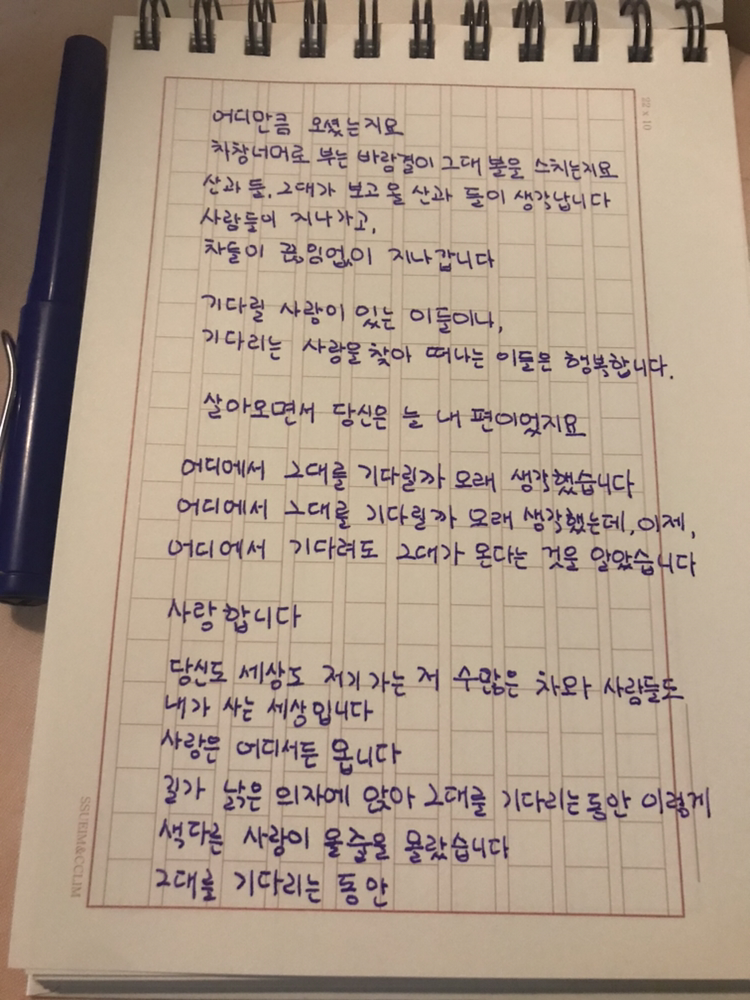 22 x 10
어디만큼 오셨는지요
차창너머로 부는 바람결이 그대 볼을 스치는지요
산과 들, 그대가 보고 올 산과 들이 생각납니다
사람들이 지나가고,
차들이 끊임없이 지나갑니다
기다릴 사람이 있는 이들이나,
기다리는 사람을 찾아 떠나는 이들은 행복합니다.
살아오면서 당신은 늘 내 편이었지요
어디에서 그대를 기다릴까 오래 생각했습니다
어디에서 그대를 기다릴까 오래 생각했는데, 이제,
어디에서 기다려도 그대가 온다는 것을 알았습니다
사랑합니다
당신도 세상도 저기 가는 저 수많은 차와 사람들도
내가 사는 세상입니다
사랑은 어디서든 옵니다
길가 낡은 의자에 앉아 그대를 기다리는 동안 이렇게
색다른 사랑이 올 줄을 몰랐습니다
그대를 기다리는 동안
SSUEIM&CCLIM